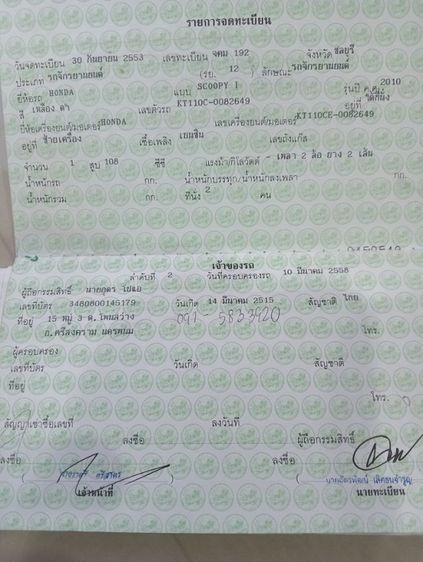 รายการจดทะเบียน
วันจดทะเบียน 30 กันยายน 2553 เลขทะเบียน จคม 192 จังหวัด ชลบุรี
ประเภท รถจักรยานยนต์ (รย. 12 ) ลักษณะ รถจักรยานยนต์
ยี่ห้อรถ HONDA แบบ SCOOPY I รุ่นปี ค.ศ. 2010
สี เหลือง ดำ เลขตัวรถ KT110C-0082649 อยู่ที่ ใต้ที่นั่ง
ยี่ห้อเครื่องยนต์/มอเตอร์ HONDA เลขเครื่องยนต์/มอเตอร์ KT110CE-0082649
อยู่ที่ ซ้ายเครื่อง เชื้อเพลิง เบนซิน เลขถังแก๊ส
จำนวน 1 สูบ 108 ซีซี แรงม้า/กิโลวัตต์ - เพลา 2 ล้อ ยาง 2 เส้น
น้ำหนักรถ กก. น้ำหนักบรรทุก/น้ำหนักลงเพลา กก.
น้ำหนักรวม กก. ที่นั่ง 2 คน
เจ้าของรถ
ลำดับที่ 2 วันที่ครอบครองรถ 10 มีนาคม 2558
ผู้ถือกรรมสิทธิ์
เลขที่บัตร 3480800145179 วันเกิด 14 มีนาคม 2515 สัญชาติ ไทย
ที่อยู่ 15 หมู่ 3 ต.โพนสว่าง 091-5833920 โทร.
อ.ศรีสงคราม นครพนม
ผู้ครอบครอง
เลขที่บัตร วันเกิด สัญชาติ
ที่อยู่
โทร.
สัญญาเช่าซื้อเลขที่ ลงวันที่
ลงชื่อ ผู้ถือกรรมสิทธิ์
ลงชื่อ ลงชื่อ
เจ้าหน้าที่ นายทะเบียน